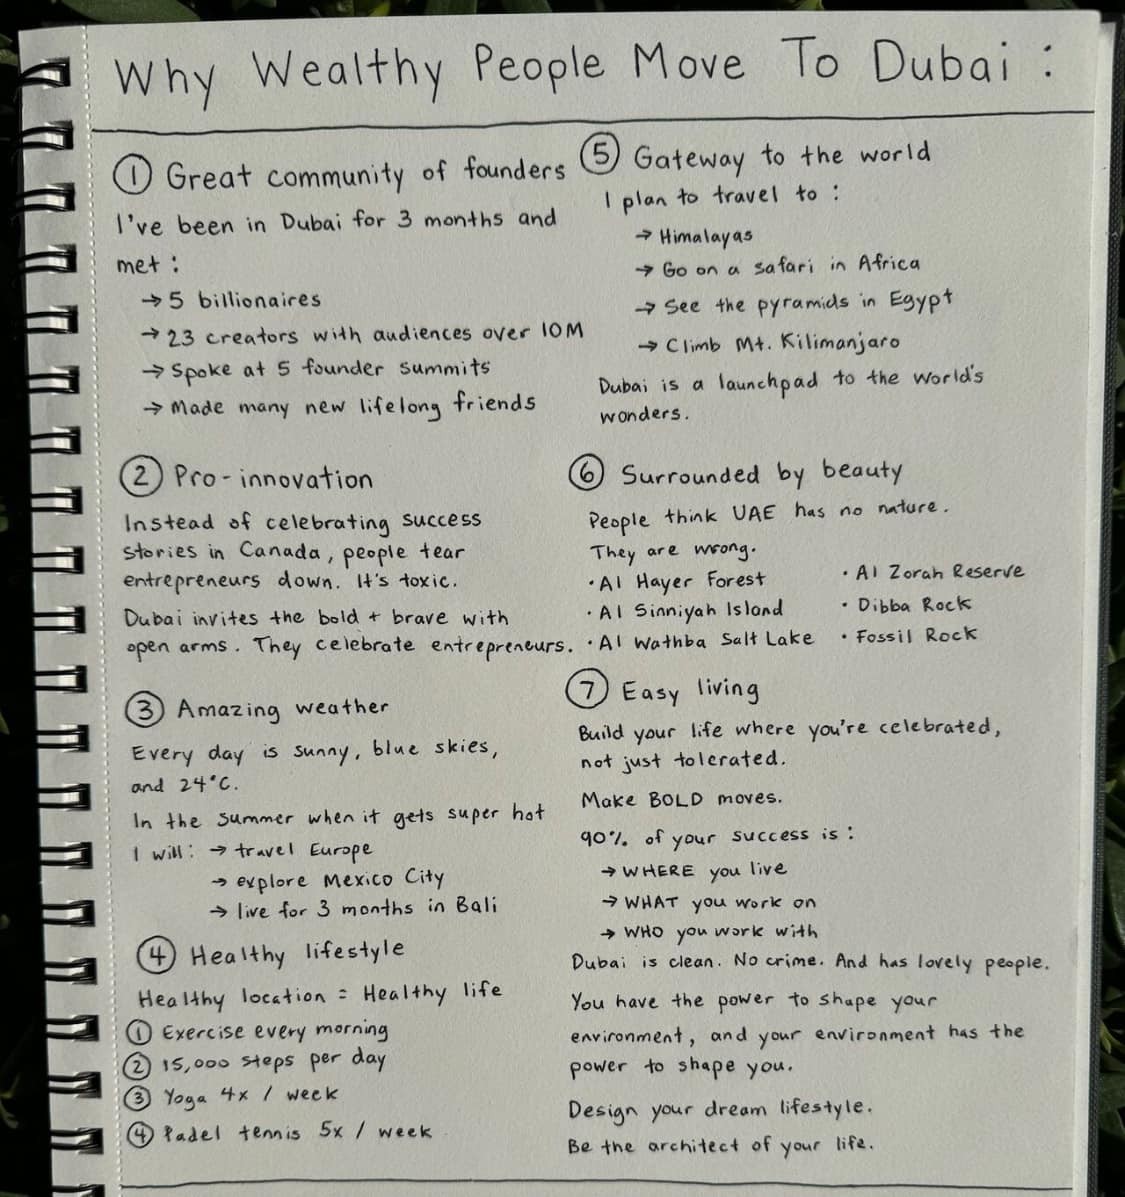 Why Wealthy People Move To Dubai :
① Great community of founders
I've been in Dubai for 3 months and
met :
→ 5 billionaires
→ 23 creators with audiences over 10M
→ Spoke at 5 founder summits
→ Made many new lifelong friends
② Pro-innovation
Instead of celebrating success
stories in Canada, people tear
entrepreneurs down. It's toxic.
Dubai invites the bold + brave with
open arms. They celebrate entrepreneurs.
③ Amazing weather
Every day is sunny, blue skies,
and 24°C.
In the summer when it gets super hot
I will: → travel Europe
→ explore Mexico City
→ live for 3 months in Bali
④ Healthy lifestyle
Healthy location = Healthy life
① Exercise every morning
② 15,000 steps per day
③ Yoga 4x / week
④ Padel tennis 5x / week
⑤ Gateway to the world
I plan to travel to :
→ Himalayas
→ Go on a safari in Africa
→ See the pyramids in Egypt
→ Climb Mt. Kilimanjaro
Dubai is a launchpad to the world's
wonders.
⑥ Surrounded by beauty
People think UAE has no nature.
They are wrong.
• Al Hayer Forest
• Al Sinniyah Island
• Al Wathba Salt Lake
• Al Zorah Reserve
• Dibba Rock
• Fossil Rock
⑦ Easy living
Build your life where you're celebrated,
not just tolerated.
Make BOLD moves.
90% of your success is :
→ WHERE you live
→ WHAT you work on
→ WHO you work with
Dubai is clean. No crime. And has lovely people.
You have the power to shape your
environment, and your environment has the
power to shape you.
Design your dream lifestyle.
Be the architect of your life.